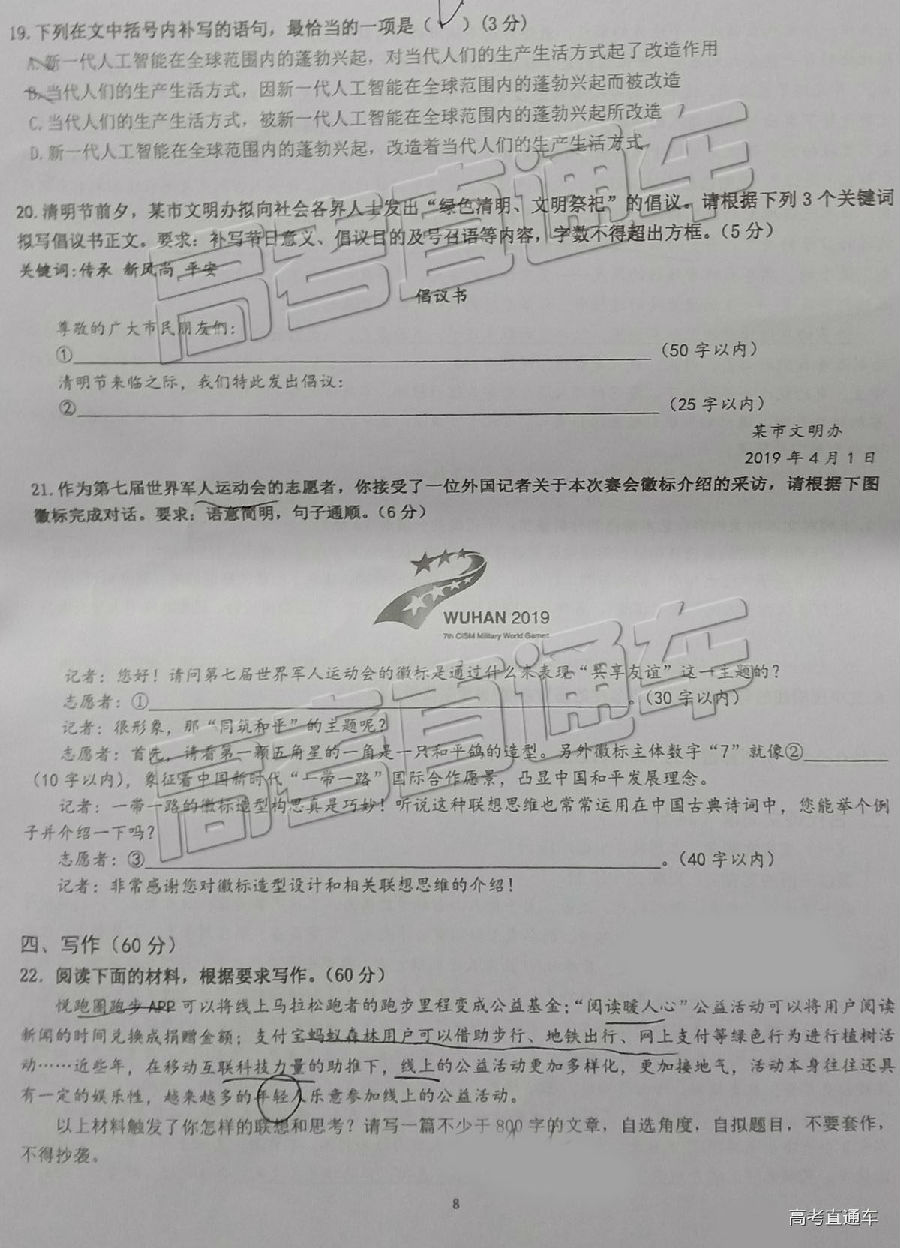 19.下列在文中括号内补写的语句，最恰当的一项是（ ）(3分)
A.新一代人工智能在全球范围内的蓬勃兴起，对当代人们的生产生活方式起了改造作用
B.当代人们的生产生活方式，因新一代人工智能在全球范围内的蓬勃兴起而被改造
C.当代人们的生产生活方式，被新一代人工智能在全球范围内的蓬勃兴起所改造
D.新一代人工智能在全球范围内的蓬勃兴起，改造着当代人们的生产生活方式
20.清明节前夕，某市文明办拟向社会各界人士发出“绿色清明、文明祭祀”的倡议。请根据下列3个关键词
拟写倡议书正文。要求：补写节日意义、倡议目的及号召语等内容，字数不得超出方框。(5分)
关键词:传承 新风尚 平安
倡议书
尊敬的广大市民朋友们：
①（50字以内）
清明节来临之际，我们特此发出倡议：
②（25字以内）
某市文明办
2019年4月1日
21.作为第七届世界军人运动会的志愿者，你接受了一位外国记者关于本次赛会徽标介绍的采访，请根据下图
徽标完成对话。要求：语意简明，句子通顺。(6分)
WUHAN 2019
7th CISM Military World Games
记者：您好！请问第七届世界军人运动会的徽标是通过什么来表现“共享友谊”这一主题的？
志愿者：①。(30字以内)
记者：很形象，那“同筑和平”的主题呢？
志愿者：首先，请看第一颗五角星的一角是一只和平鸽的造型。另外徽标主体数字“7”就像②
(10字以内)，象征着中国新时代“一带一路”国际合作愿景，凸显中国和平发展理念。
记者：一带一路的徽标造型构思真是巧妙！听说这种联想思维也常常运用在中国古典诗词中，您能举个例
子并介绍一下吗？
志愿者：③。(40字以内)
记者：非常感谢您对徽标造型设计和相关联想思维的介绍！
四、写作（60分）
22．阅读下面的材料，根据要求写作。(60分)
悦跑圈跑步APP可以将线上马拉松跑者的跑步里程变成公益基金；“阅读暖人心”公益活动可以将用户阅读
新闻的时间兑换成捐赠金额；支付宝蚂蚁森林用户可以借助步行、地铁出行、网上支付等绿色行为进行植树活
动……近些年，在移动互联科技力量的助推下，线上的公益活动更加多样化，更加接地气，活动本身往往还具
有一定的娱乐性，越来越多的年轻人乐意参加线上的公益活动。
以上材料触发了你怎样的联想和思考？请写一篇不少于800字的文章，自选角度，自拟题目，不要套作，
不得抄袭。
8
高考直通车
高考直通车
高考直通车